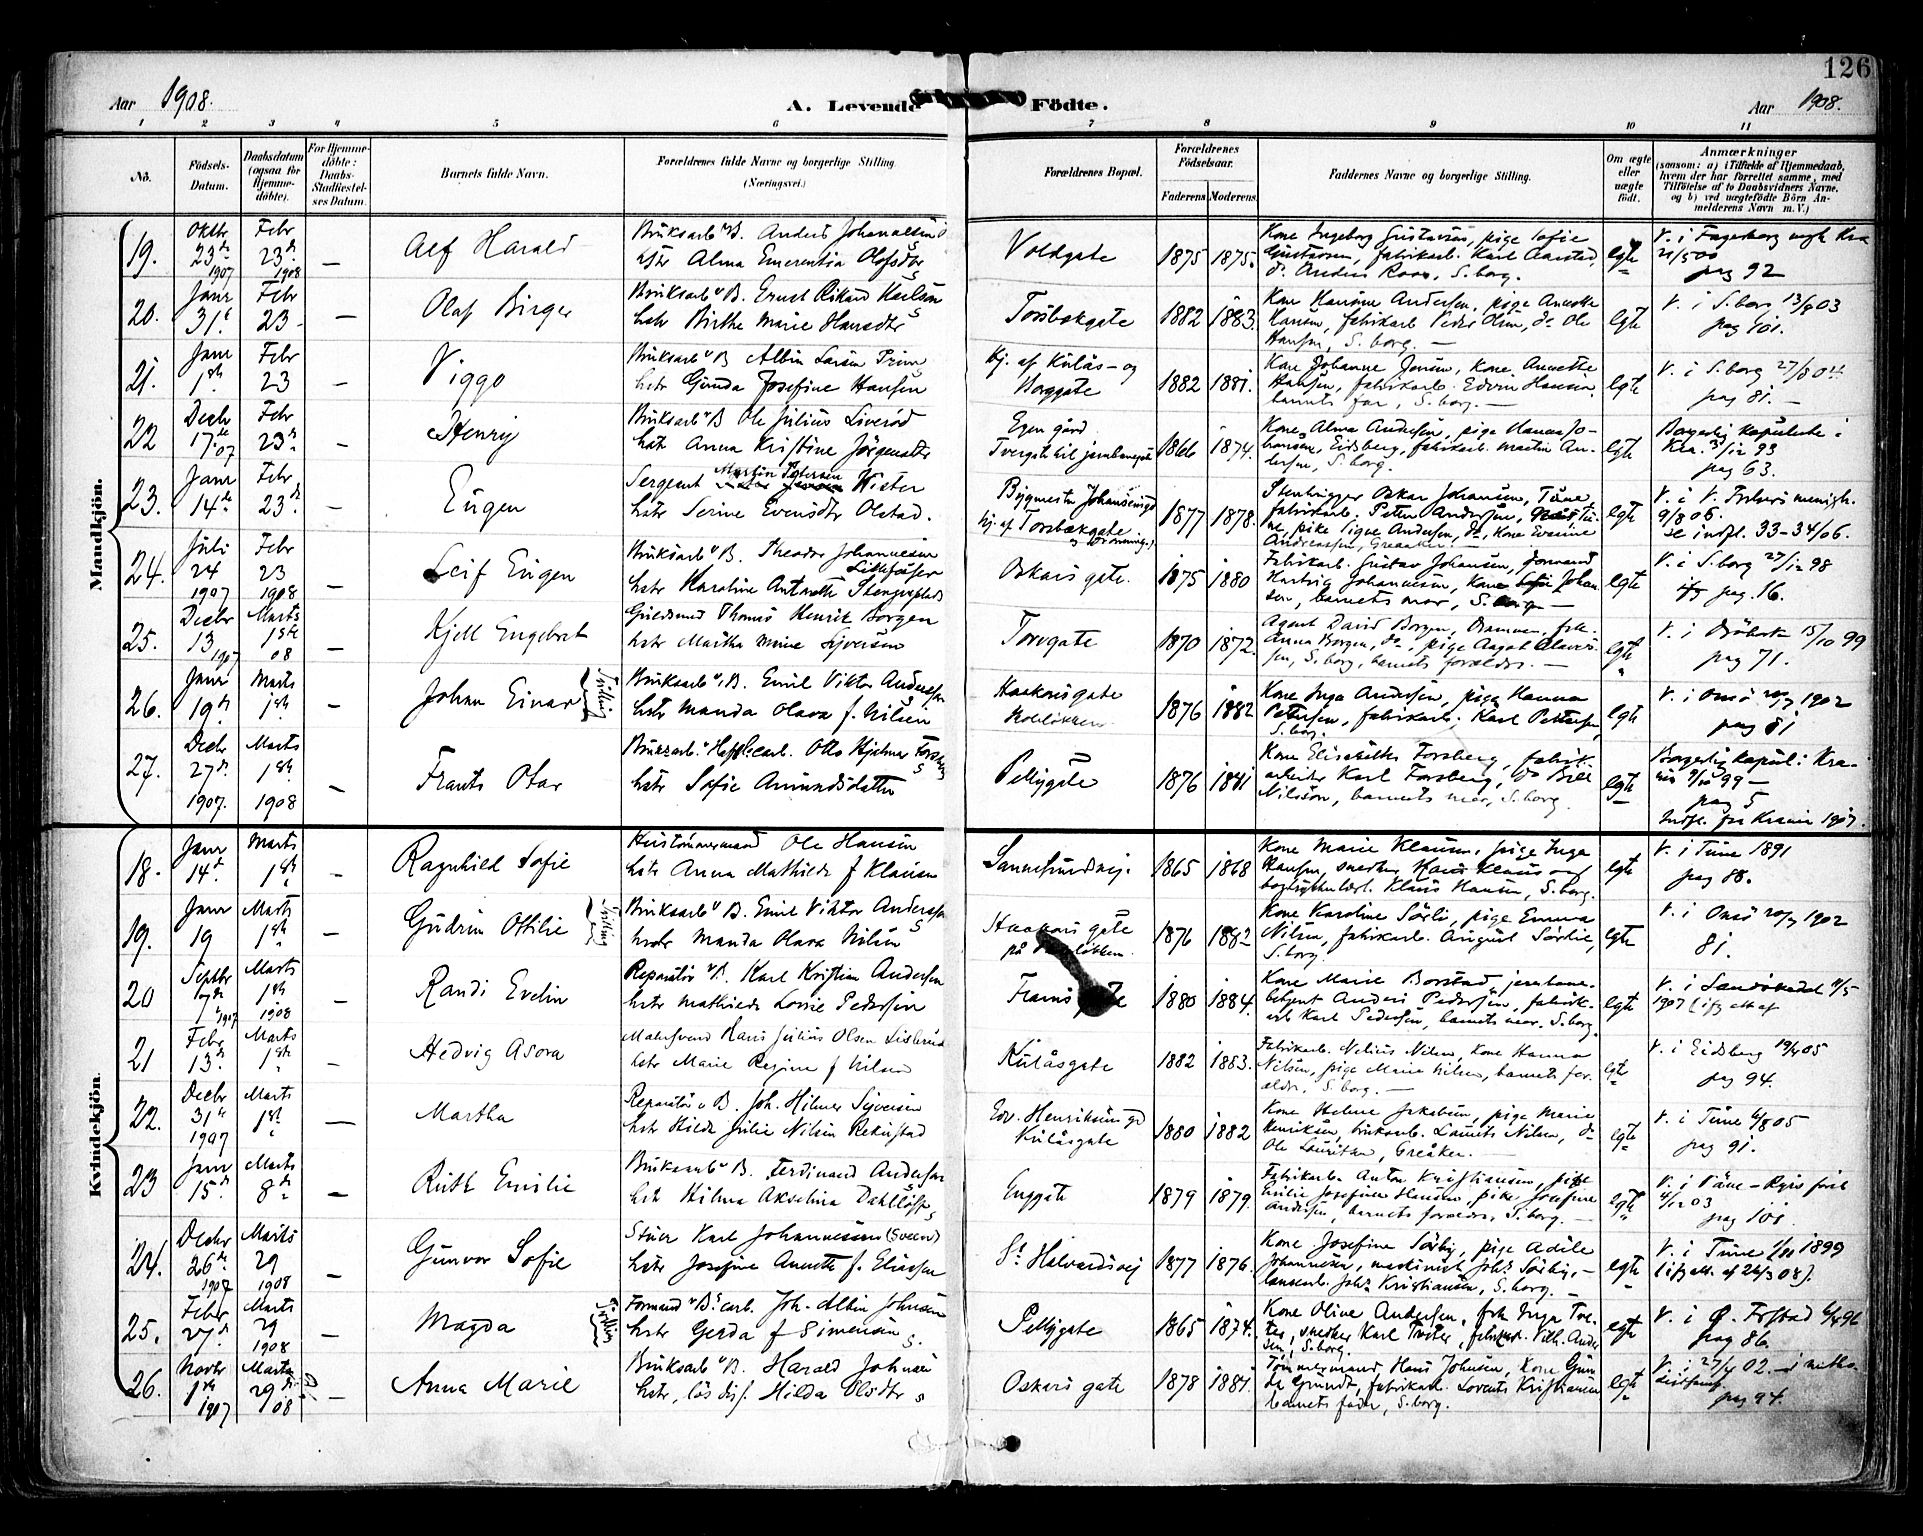 126
Aar 1908.
A. Levende Födte.
Aar 1908.
1 2 3 4 5 6 7 8 9 10 11
No. Födsels-Datum. Daabsdatum (ogsaa for Hjemme-döbte). For Hjemme-döbte: Daabs-Stadfæstel-ses Datum. Barnets fulde Navn. Forældrenes fulde Navne og borgerlige Stilling. (Næringsvei.) Forældrenes Bopæl. Forældrenes Födselsaar. Faderens Moderens Faddernes Navne og borgerlige Stilling. Om ægte eller uægte födt. Anmærkninger (saasom: a) i Tilfælde af Hjemmedaab, hvem der har forrettet samme, med Tilföielse af to Daabsvidners Navne, og b) ved uægtefödte Börn An-melderens Navn m. V.)
Mandkjön.
19. Oktbr 23de 1907 Febr 23de 1908 — Alf Harald
Bruksarb. v. B. Anders Johannesen
hstr Alma Emerentia Olofsdtr
Voldgate 1875 1875. Kone Ingeborg Gustavsen, pige Sofie Gustavsen, fabrikarb. Karl Aarstad, do Anders Roos, S.borg. egte V. i Fagerborg mgh Kra 21/5 00 pag 92
20. Janr 31te Febr 23 — Olaf Birger
Bruksarb v. B. Ernst Rikard Karlsen
hstr Birthe Marie Hansdtr
Torsbækgate 1882 1883. Kone Hansine Andersen, pige Annette Hansen, fabrikarb Peder Olsen, do Ole Hansen, S.borg. — egte V. i S.borg 13/9 03 pag 101.
21. Janr 1ste Febr 23 — Viggo
Bruksarb v. B Albin Larsen
hstr Gunda Josefine Hansen
Hj. af Kulås- og Borggate 1882 1881. Kone Johanne Jensen, kone Annette Hansen, fabrikarb. Edvin Hansen, barnets far, S.borg. — egte V. i S.borg pag 81. —
22 Decbr 17de 07 Febr 23de — Henry
Bruksarb v. B Ole Julius Liverød
hstr Anna Kristine Jørgensdtr
Egen gård Tvergate til jernbanegate 1866 1874. Kone Alma Andersen, pige Hanna Johansen, Eidsberg, fabrikarb. Martin Andersen, S.borg. egte Borgerlig kopulerte i Kra. 3/12 93 pag 63.
23. Janr 14de Febr 23de — Eugen
Sergeant Martin Petersen Wister
hstr Serine Evensdtr Olstad.
Bygmester Johansens gd hj. af Torsbækgate 1877 1878. Stenhugger Oskar Johansen, Tune, fabrikarb. Peter Andersen, Tune, pike Signe Andersen, do, kone Evensine Andreassen, Greaaker. — egte 9/8 06. se indfl. 33-34/06.
24. Juli 24 1907 Febr 23 1908 — Leif Eugen
Bruksarb v. B. Theodor Johannesen
hstr Karoline Antonette
Oskars gate. 1875 1880 Fabrikarb. Gustav Johansen, formand Hartvig Johannesen, kone Johansen, barnets mor, S.borg — egte V. i S.borg 27/12 98 pag. 16.
25. Decbr 13 1907 Marts 1ste 08 — Kjell Engebret
Guldsmed Thomas Henrik Borgen
hstr Martha Marie Syversen
Torvgate 1870 1872. Agent David Borgen, Drammen, frk. Anna Borgen, do, pige Aagot, S.borg, barnets forældre. — egte V. i Drøbak 15/10 99 pag 71.
26. Janr 19de Marts 1ste — Johan Einar Tvilling
Bruksarb. v. B. Emil Viktor Anderssen
hstr Manda Olava f. Nilsen
Haakonsgate 1876 1882 Kone Inga Andersen, pige Hanna Pettersen, fabrikarb. Karl Pettersen, S.borg. egte V. i Onsø 20/7 1902 pag 81
27. Decbr 27de 1907. Marts 1ste 1908 — Frants Otar
Bruksarb. Otto Hjalmar Forsberg
hstr Sofie Amundsdatter
Pellygate 1876 1881 Kone Elisabeth Forsberg, fabrikarbeider Karl Forsberg, do Nilsson, barnets mor, S.borg. egte Borgerlig kopul. i Kra- 99 — pag 5 Indfl. fra 1907.
Kvindekjön.
18. Janr 14de Marts 1ste — Ragnhild Sofie
Hustømmermand Ole Hansen
hstr Anna Mathilde f Klausen
Sannesundvej. 1865 1868 Kone Marie Klausen, pige Inga Hansen, snedker Klausen og bogtrykkerlærl. Klaus Hansen, S.borg. egte V. i Tune 1891 pag 88.
19. Janr 19 Marts 1ste Gudrun Ottilie Tvilling
Bruksarb v. B. Emil Viktor Anderssen
hstr Manda Olava Nilsen
Haakons gate på 1876 1882 Kone Karoline Sørli, pige Emma Nilsen, fabrikarb. August Sørlie, S.borg. egte V. i Onsø 20/7 1902 81.
20 Septbr 17de 1907 Marts 1ste 1908 — Randi Evelin
Reparatør v. B. Karl Kristian Andersen
hstr Mathilde Lovise Pedersen
1880 1884. Kone Marie Borstad, jernbanebetjent Anders Pedersen, fabrikarb Karl Pedersen, barnets mor, S.borg egte V. i Sandøsedal 9/5 1907 (ifg att af
21 Febr 13de Marts 1ste — Hedvig Asora
Malersvend Hans Julius Olsen
hstr Marie Regine f Nilsen
Kulåsgate 1882 1883. Fabrikarb. Nelius Nilsen, kone Hanna Nilsen, pige Marie Nilsen, barnets forældre, S.borg. — egte V. i Eidsberg 19/4 05 pag 94.
22. Decbr 31te 1907 Marts 1ste — Martha
Reparatør v B. Joh. Hilmar Syversen
hstr Hilda Julie Nilsen Rekustad
Edv. Henriksens gd Kulåsgate 1880 1882 Kone Helene Jakobsen, pige Marie Henriksen, bruksarb. Laurits Nilsen, do Ole Lauritsen, Greåker. — egte V. i Tune 6/8 05 pag 91.
23 Janr 15de Marts 8de — Ruth Emilie
Bruksarb v. B. Ferdinand Andersen
hstr Hilma Akselina
Enggate 1879 1879. Fabrikarb. Anton Kristiansen, pige Emilie Josefine Hansen, pike Josefine Andersen, barnets forældre, S.borg. — egte V. i Våle 4/12 03 pag 101.
24. Decbr 26de 1907 Marts 29 1908 — Gunvor Sofie
Stuer Karl Johannessen (Sveen)
hstr Josefine Annette f. Eliassen
St. Halvardsvej 1877 1876. Kone Josefine Sørby, pige Adele Johannesen, maskinist Johs Sørby, Johs Kristiansen, S.borg. — egte V. i Tune 1899 (ifg att. af 26/3 08).
25. Febr 27de Marts 29 1908 — Magda Tvilling
Formand v. B. Joh. Albin Johnsen
hstr Gerda f Simensen
Pellygate 1865 1874. Kone Oline Andersen, frk Inga Tveter, snedker Karl Tveter, fabrikarb. Vilh. Andersen, S.borg. egte V. i Ø. Fr.stad 6/4 96 pag 86.
26. Novbr 1ste 1907 Marts 29de 08 — Anna Marie
Bruksarb v. B. Harald Johnsen
hstr, løs disf. Hilda Olsdtr
Oskars gate 1878 1881. Tømmermand Hans Johnsen, kone Gunda Grundt, fabrikarb. Lorents Kristiansen, barnets fader, S.borg. egte V. i 27/4 02. — i pag 94.